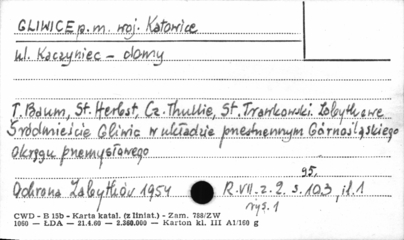 GLIWICE p.m. woj. Katowice
ul. Kaczyniec - domy
T. Baum, St. Herbst, Cz. Thullie, St. Trawkowski. Zabytkowe
Śródmieście Gliwic w układzie przestrzennym Górnośląskiego
Okręgu przemysłowego
95.
Ochrona Zabytków 1954 R. VII. z. 2. s. 103, il. 1
rys. 1
CWD - B 15b - Karta katal. (z liniat.) - Zam. 788/ZW
1060 — ŁDA — 21.4.60 — 2.360.000 — Karton kl. III A1/160 g